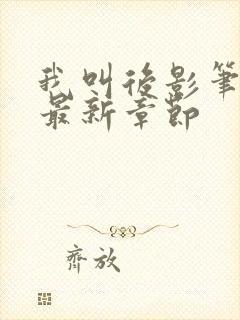 我叫後影筆
最新章節
齊放